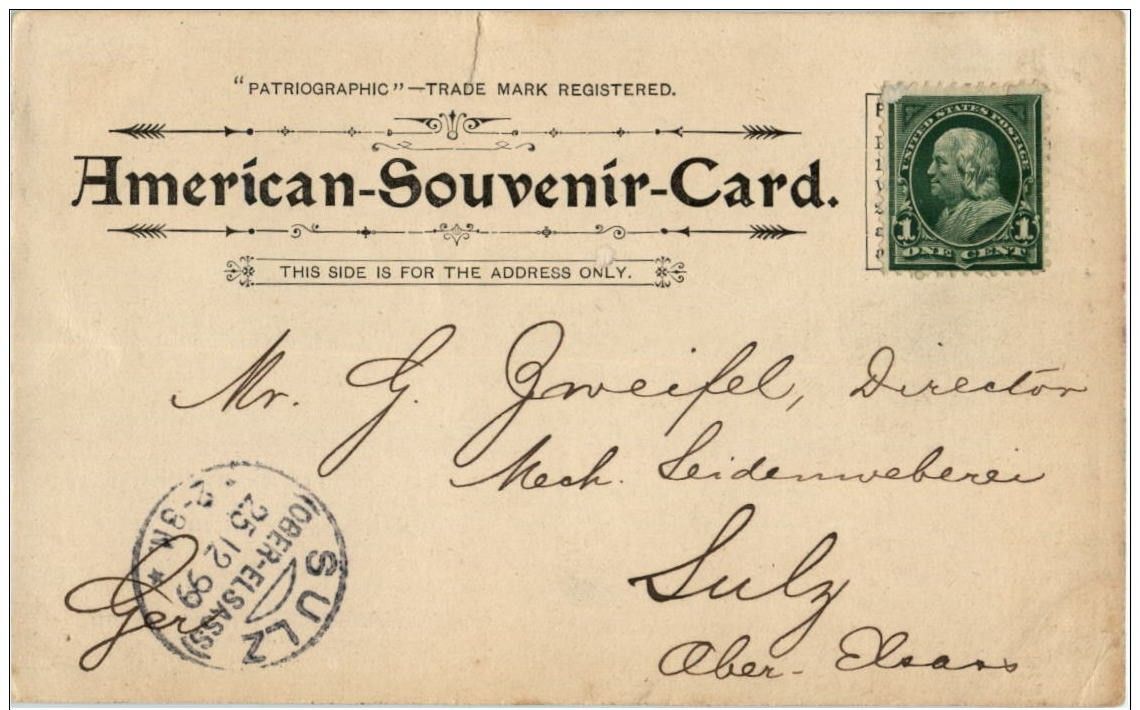 "PATRIOGRAPHIC"—TRADE MARK REGISTERED.
American-Souvenir-Card.
THIS SIDE IS FOR THE ADDRESS ONLY.
UNITED STATES POSTAGE
1 1
ONE CENT
Mr. G. Zweifel, Director
Mech. Seidenweberei
Sulz
Ober-Elsass
SULZ
(OBER-ELSASS)
25 12 99
2-3N